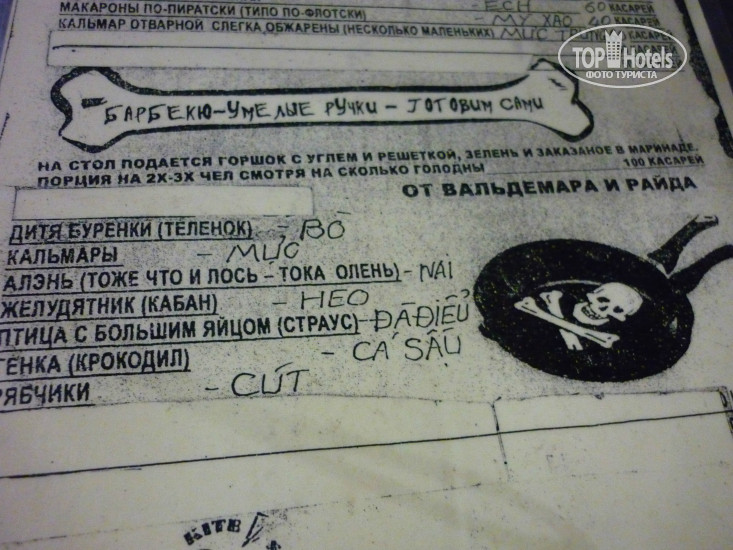 МАКАРОНЫ ПО-ПИРАТСКИ (ТИПО ПО-ФЛОТСКИ) - ECH 60 КАСАРЕЙ
КАЛЬМАР ОТВАРНОЙ СЛЕГКА ОБЖАРЕНЫ (НЕСКОЛЬКО МАЛЕНЬКИХ) MỰC
TOP Hotels
ФОТО ТУРИСТА
- БАРБЕКЮ-УМЕЛЫЕ РУЧКИ - ГОТОВИМ САМИ
НА СТОЛ ПОДАЕТСЯ ГОРШОК С УГЛЕМ И РЕШЕТКОЙ, ЗЕЛЕНЬ И ЗАКАЗАНОЕ В МАРИНАДЕ.
ПОРЦИЯ НА 2Х-3Х ЧЕЛ СМОТРЯ НА СКОЛЬКО ГОЛОДНЫ 100 КАСАРЕЙ
ОТ ВАЛЬДЕМАРА И РАЙДА
ДИТЯ БУРЕНКИ (ТЕЛЕНОК) - BÒ
КАЛЬМАРЫ - MỰC
АЛЭНЬ (ТОЖЕ ЧТО И ЛОСЬ - ТОКА ОЛЕНЬ) - NAI
ЖЕЛУДЯТНИК (КАБАН) - HEO
ПТИЦА С БОЛЬШИМ ЯЙЦОМ (СТРАУС) - ĐÀ ĐIỂU
ГЕНКА (КРОКОДИЛ) - CÁ SẤU
РЯБЧИКИ - CÚT
KITE